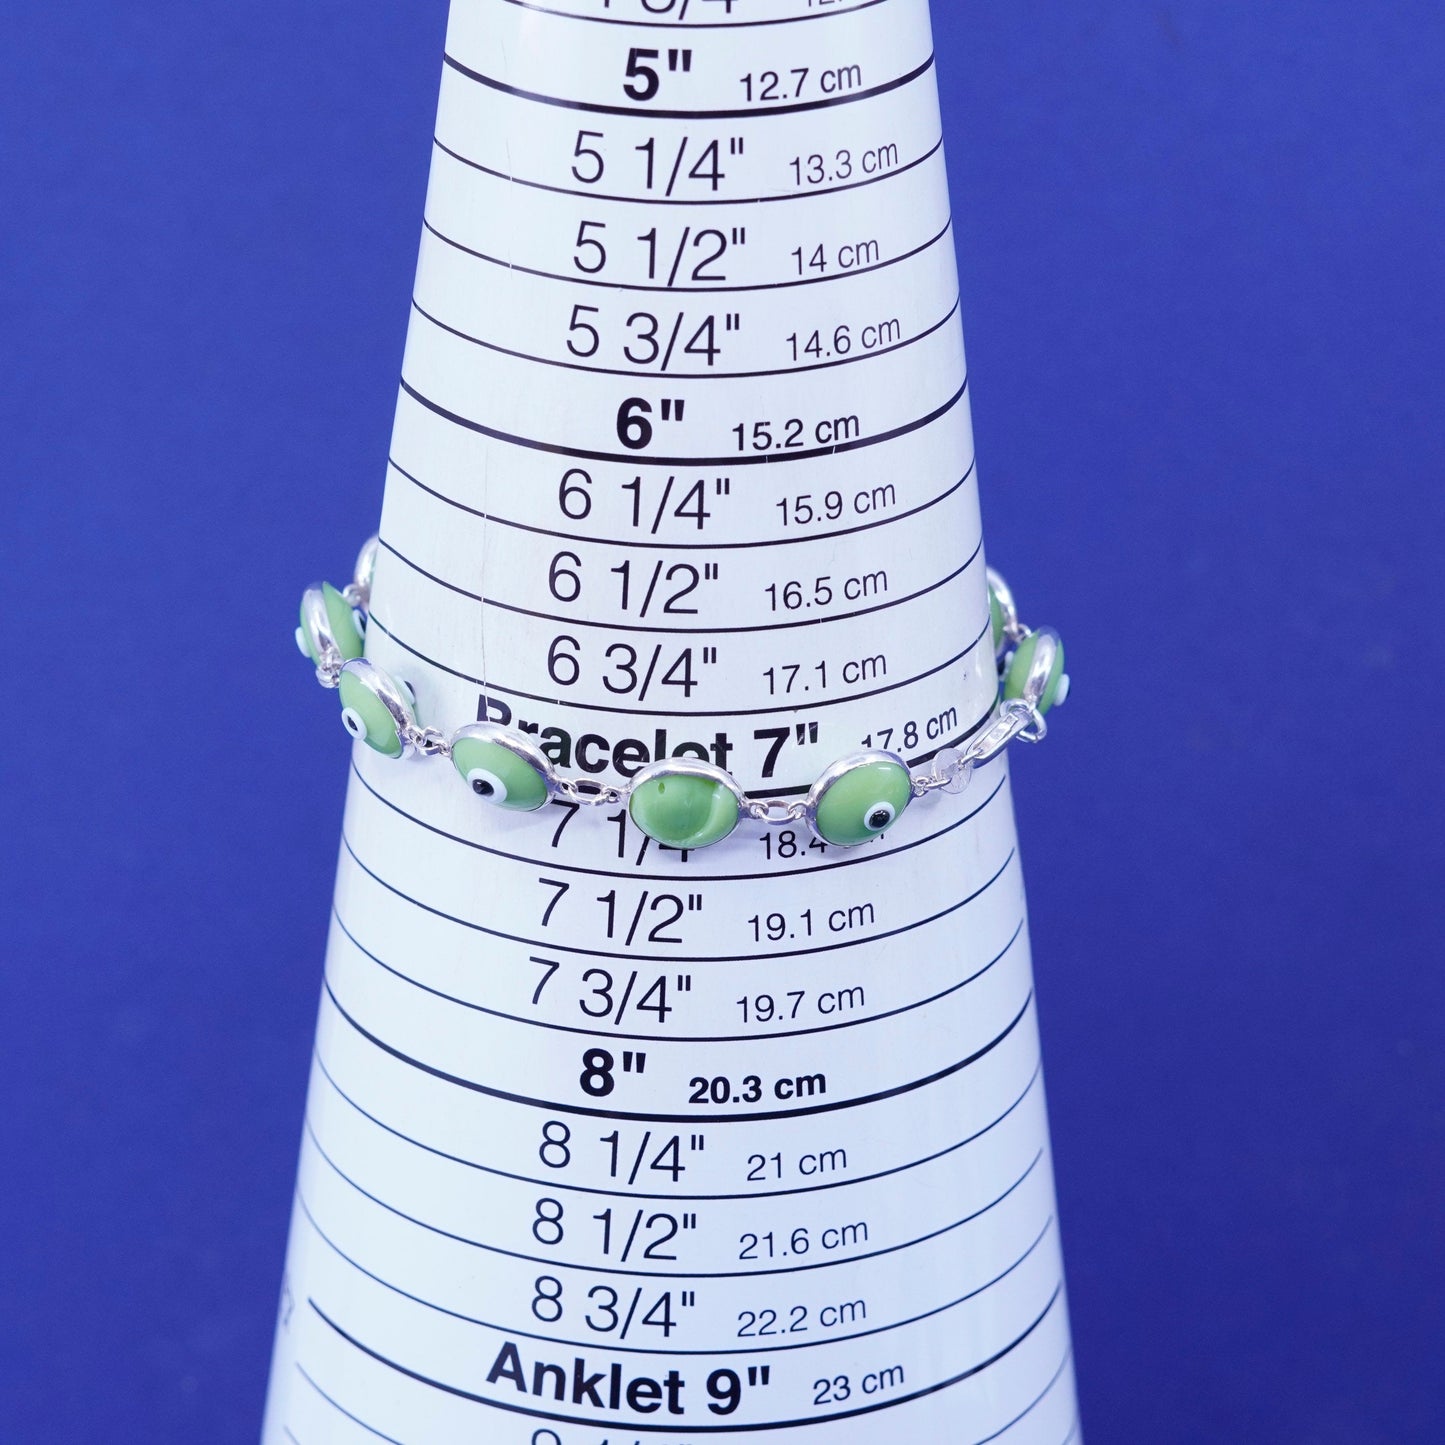 5" 12.7 cm
5 1/4" 13.3 cm
5 1/2" 14 cm
5 3/4" 14.6 cm
6" 15.2 cm
6 1/4" 15.9 cm
6 1/2" 16.5 cm
6 3/4" 17.1 cm
Bracelet 7" 17.8 cm
7 1/4 18.4
7 1/2" 19.1 cm
7 3/4" 19.7 cm
8" 20.3 cm
8 1/4" 21 cm
8 1/2" 21.6 cm
8 3/4" 22.2 cm
Anklet 9" 23 cm